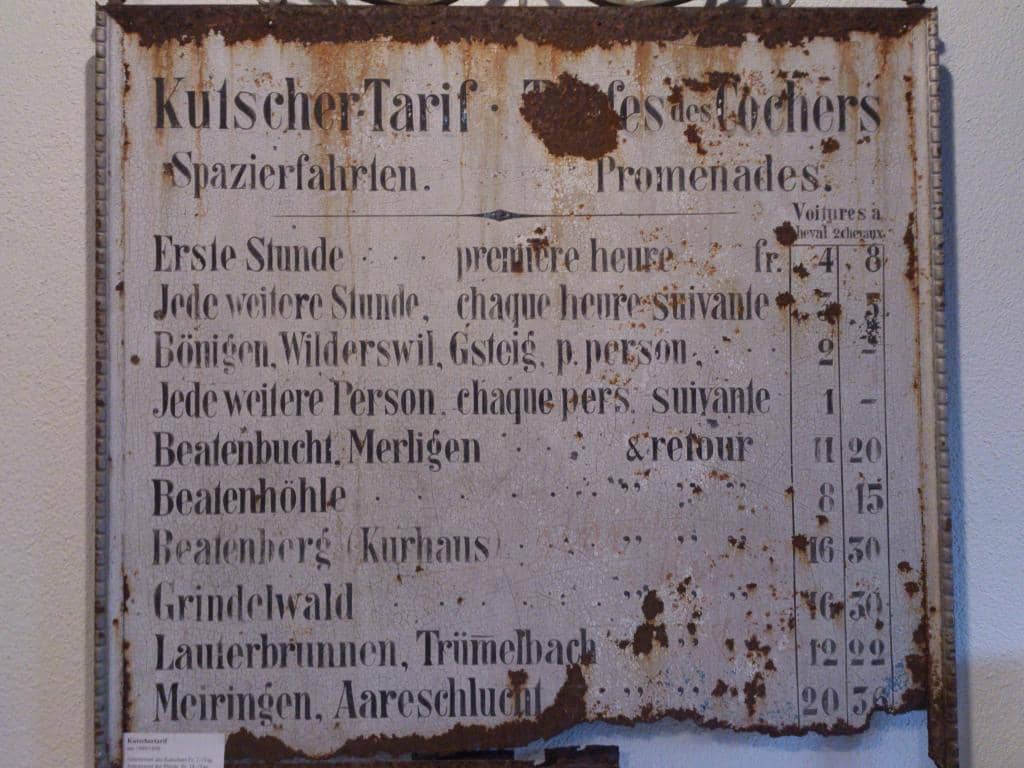 Kutscher-Tarif · des Cochers
Spazierfahrten. Promenades.
Voitures à
cheval 2 chevaux
Erste Stunde · · · première heure fr. 4 8
Jede weitere Stunde, chaque heure suivante 5
Bönigen, Wilderswil, Gsteig, p. person, · · 2 –
Jede weitere Person, chaque pers. suivante 1 –
Beatenbucht, Merligen · · & retour 11 20
Beatenhöhle · · · · · " " " 8 15
Beatenberg (Kurhaus) · · · " " " 16 30
Grindelwald · · · · · " " 16 30
Lauterbrunnen, Trümelbach " 12 22
Meiringen, Aareschlucht · " " " 20 36
Kutschertarif